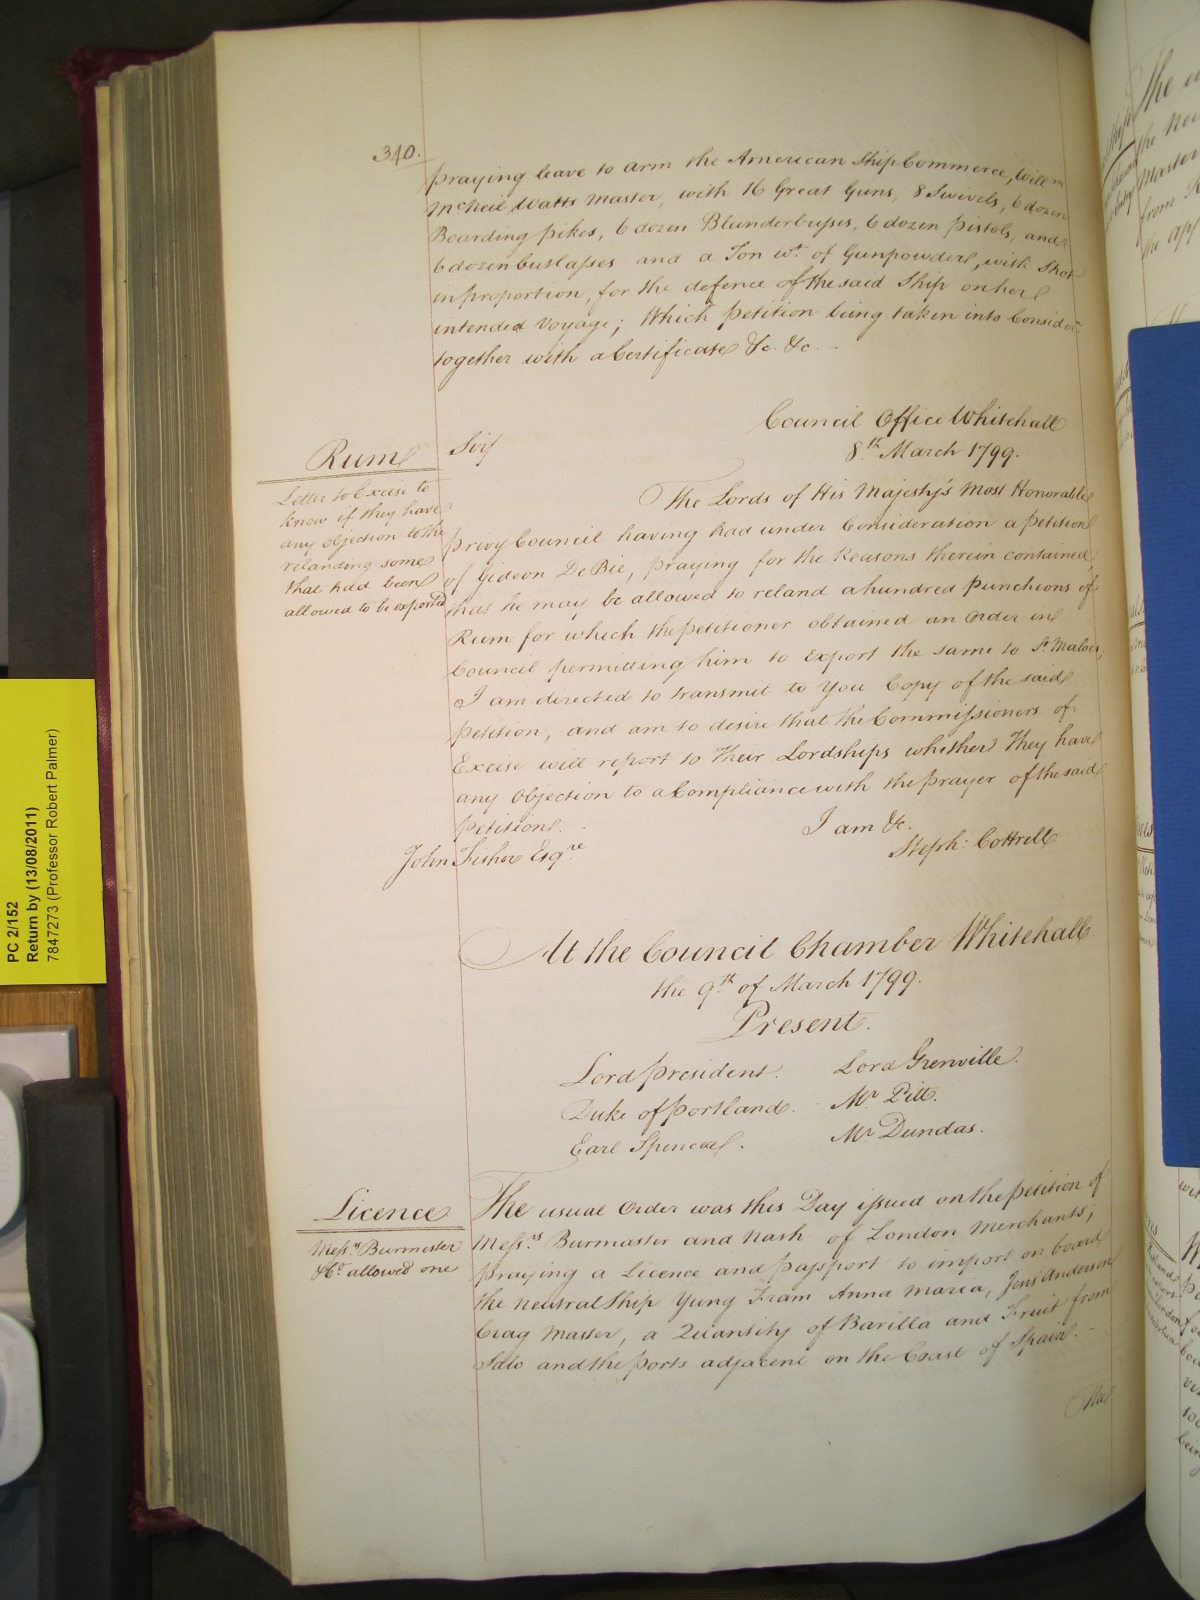 340.
praying leave to arm the American Ship Commerce, Willm
McNeil Watts Master, with 16 Great Guns, 8 Swivels, 6 dozen
Boarding pikes, 6 dozen Blunderbusses, 6 dozen pistols, and
6 dozen Cutlasses and a Ton wt. of Gunpowder, with Shot
in proportion, for the defence of the said Ship on her
intended Voyage; Which petition being taken into Consideron.
together with a Certificate &c. &c.
Council Office Whitehall
8th. March 1799.
Rum
Letter to Excise to
know if they have
any objection to the
relanding some
that had been
allowed to be exported
Sir
The Lords of His Majesty's Most Honorable
Privy Council having had under Consideration a petition
of Gideon De Bie, praying for the Reasons therein contained,
that he may be allowed to reland a hundred Puncheons of
Rum for which the petitioner obtained an Order in
Council permitting him to Export the same to St. Maloes,
I am directed to transmit to You Copy of the said
petition, and am to desire that the Commissioners of
Excise will report to Their Lordships whether They have
any Objection to a Compliance with the prayer of the said
petition.
I am &c.
Steph: Cottrell
John Fisher Esqre
At the Council Chamber Whitehall
the 9th. of March 1799.
Present.
Lord President. Lord Grenville.
Duke of Portland. Mr. Pitt.
Earl Spencer. Mr. Dundas.
Licence
Messrs. Burmester
& Co. allowed one
The usual Order was this Day issued on the petition of
Messrs. Burmaster and Nash of London Merchants,
praying a Licence and passport to import on board
the neutral Ship Yung Fram Anna Maria, Jens Anderson
Crag Master, a Quantity of Barilla and Fruit from
Salo and the ports adjacent on the Coast of Spain.
The
PC 2/152
Return by (13/08/2011)
7847273 (Professor Robert Palmer)